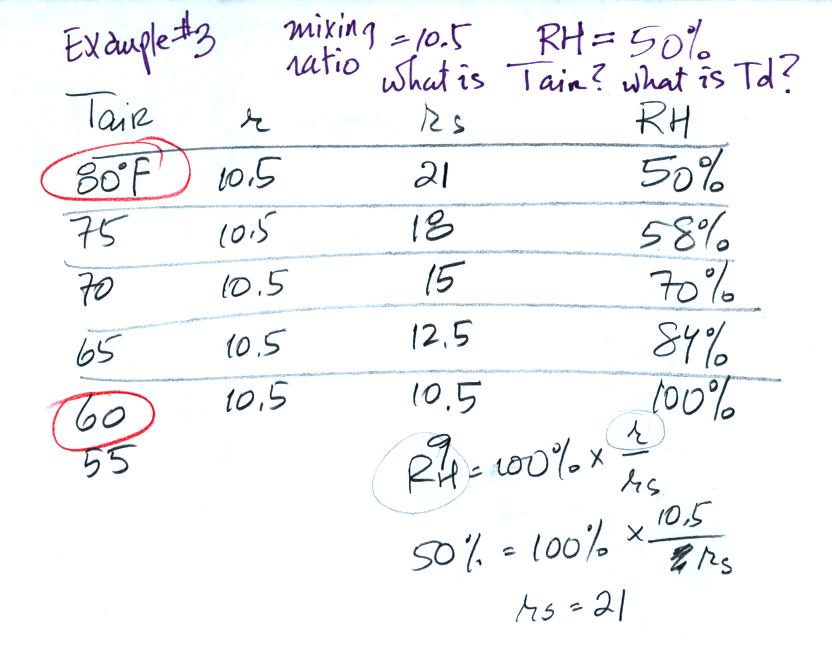 Example #3 mixing ratio = 10.5 RH = 50%
what is Tair? what is Td?
Tair r rs RH
80°F 10.5 21 50%
75 10.5 18 58%
70 10.5 15 70%
65 10.5 12.5 84%
60 10.5 10.5 100%
55 9
RH = 100% × r / rs
50% = 100% × 10.5 / rs
rs = 21